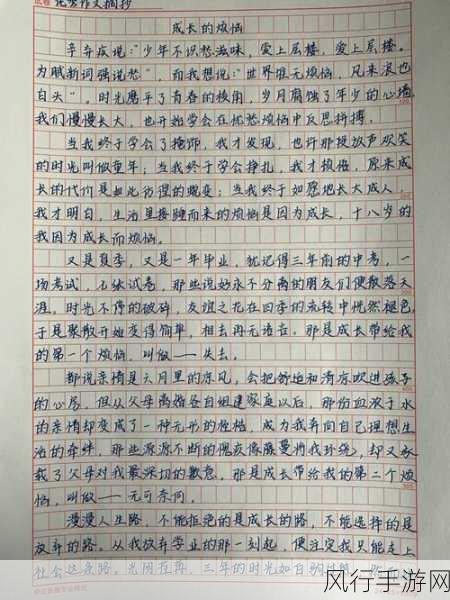 优秀作文摘抄
成长的烦恼
辛弃疾说:“少年不识愁滋味,爱上层楼,爱上层楼。
为赋新词强说愁”,而我想说:“世界唯无烦恼,风来浪也
白头”。时光磨平了青春的棱角,岁月腐蚀了年少的心墙
我们慢慢长大,也开始学会在忧愁烦恼中反思拼搏。
当我终于学会了掩饰,我才发现,也许那段放声欢笑
的时光叫做童年;当我终于学会挣扎,我才顿悟,原来成
长的代价是如此彷徨的蜕变;当我终于如愿地长大成人
我才明白,生活里接踵而来的烦恼是因为成长,十八岁的
我因为成长而烦恼。
又是夏季,又是一年毕业,犹记得三年前的中考,一
场考试,几张试卷,那些说好永不分离的朋友们便散落天
涯。时光不停的破碎,友谊之花在四季的流转中恍然褪色
于是聚散开始变得简单,相去再无语言。那是成长带给我
的第一个烦恼,叫做——失去。
都说亲情是六月里的凉风,会把舒适和清凉吹进孩子
的心房,但从父母离婚各自组建家庭以后,那份血浓于水
的亲情却变成了一种无形的桎梏,成为我奔向自己理想生
活的牵绊,那些源源不断的愧疚像藤蔓将我环绕,却又承
载了父母对我最深切的歉意。那是成长带给我的第二个烦
恼,叫做——无可奈何。
漫漫人生路,不能拒绝的是成长的路,不能选择的是
放弃的路。从我放弃学业的那一刻起,便注定我只能走上
社会这条路,光阴在苒,三年的时光如白驹过隙,
风行手游网